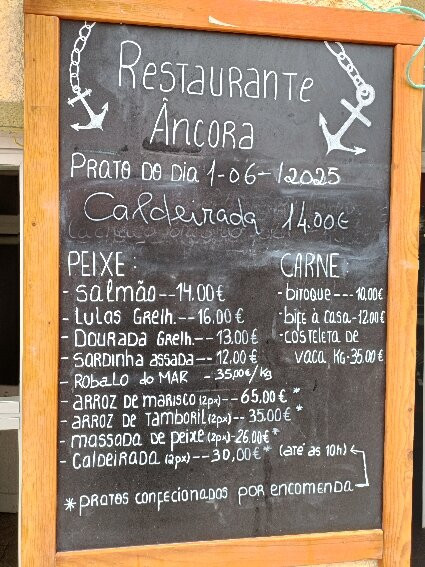 Restaurante
Âncora
Prato do dia 1-06-/2025
Caldeirada 14.00€
PEIXE:
- Salmão -- 14.00€
- Lulas Grelh. -- 16,00€
- Dourada Grelh. -- 13.00€
- Sardinha assada -- 12.00€
- Robalo do MAR - 35,00€/kg
- Arroz de Marisco (2px) -- 65,00€ *
- Arroz de Tamboril (2px) -- 35.00€ *
- Massada de peixe (2px) - 26,00€ *
- Caldeirada (2px) -- 30,00€ * (até as 10h)
CARNE:
- bitoque --- 10,00€
- bife à casa - 12.00€
- costeleta de
vaca kg - 35.00€
* pratos confecionados por encomenda